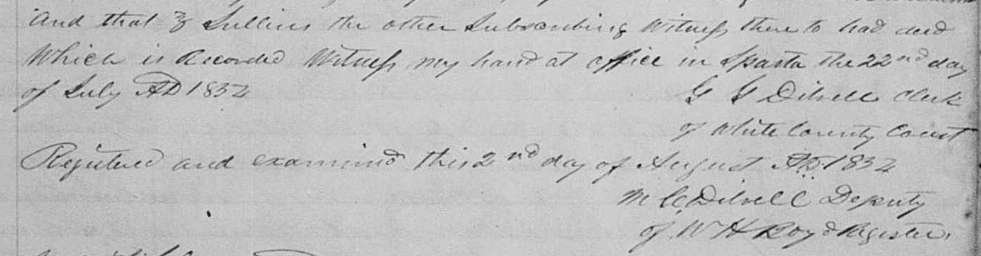 and that Z Sullins the other Subscribing Witness there to had died
Which is Recorded Witness my hand at office in Sparta the 22nd day
of July AD 1852
G G Dibrell Clerk
of White County Court
Registered and examined this 2nd day of August AD 1852
M C Dibrell Deputy
of W H Boyd Register.